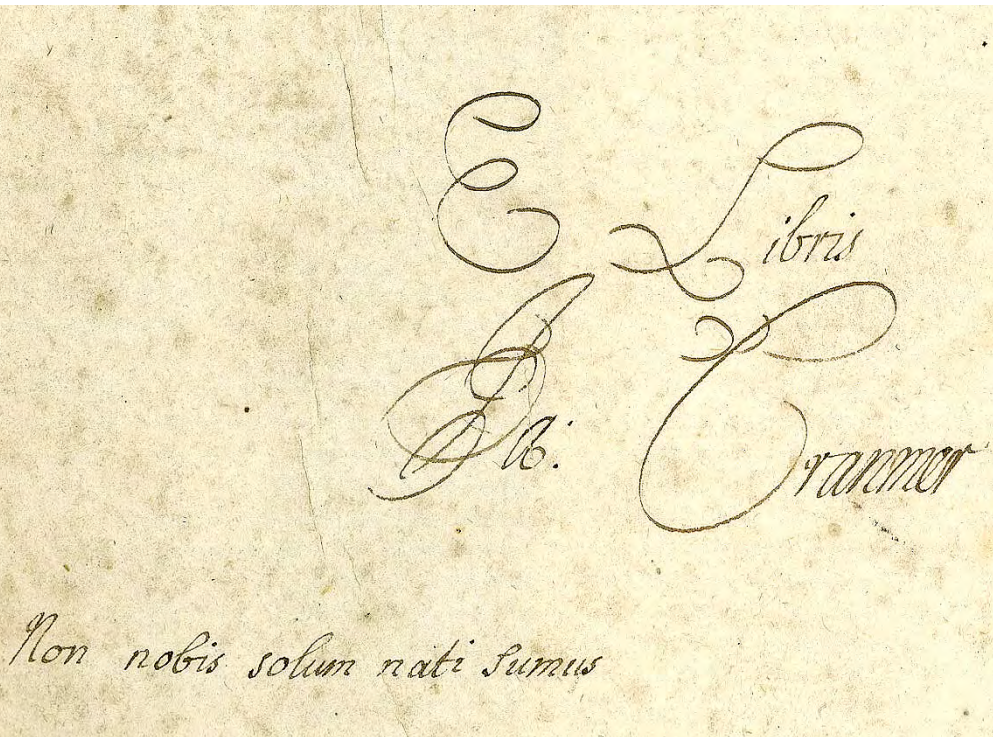 E Libris
Ja: Cranmer
Non nobis solum nati sumus